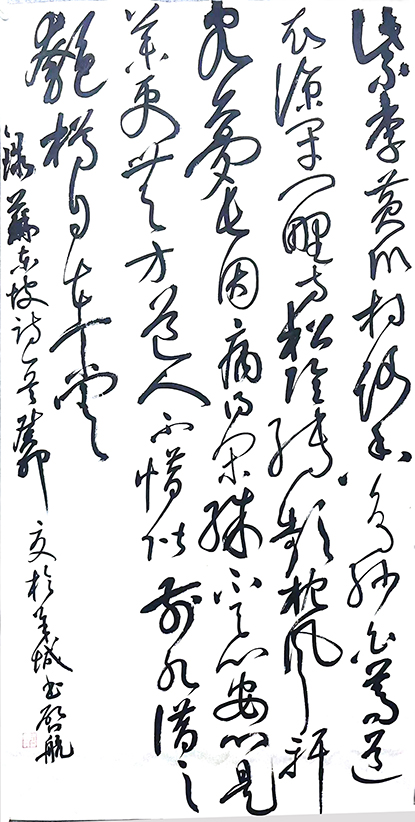 紫李黄瓜村路香乌纱白葛道
衣凉闭门野寺松阴转欹枕风轩
客梦长因病得闲殊不恶安心是
药更无方道人不惜阶前水借与
匏樽自在尝
錄蘇东坡诗一首癸卯夏於羊城书启航